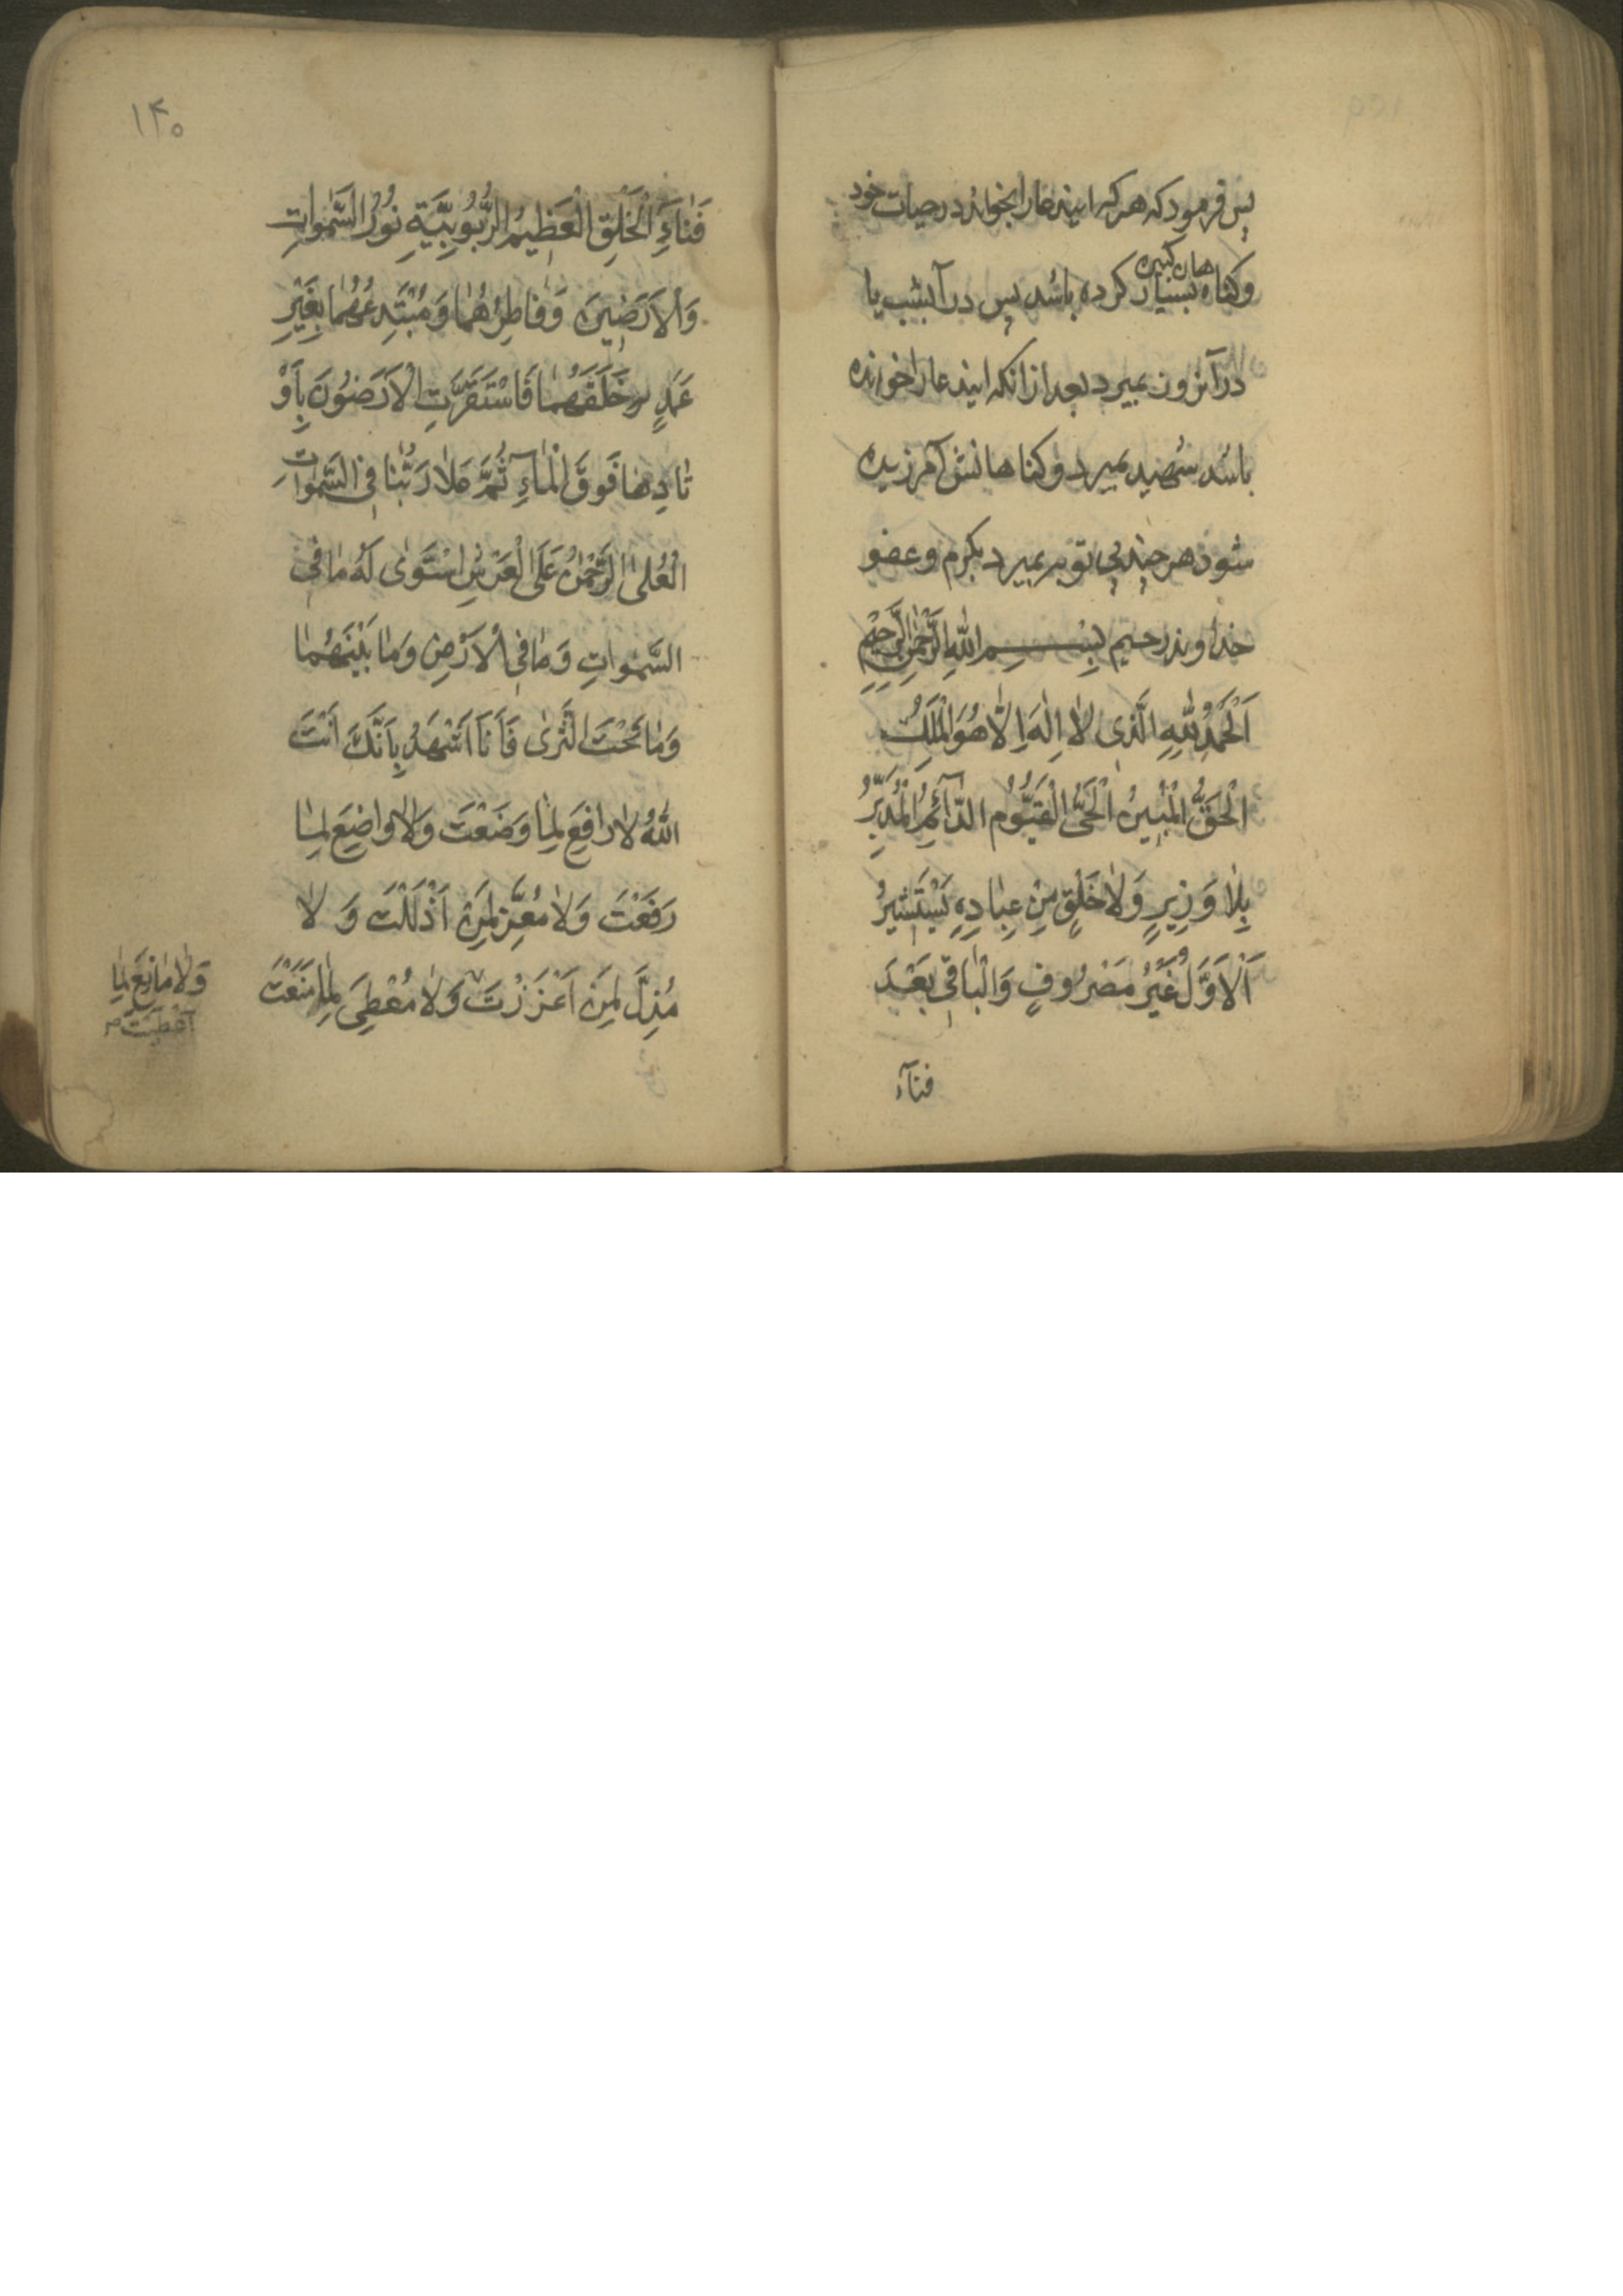 پس فرمود که هر که ایندعا را بخواند در حیات خود
و کناه بسیار کرده باشد پس در آنشب یا
هان کبیره
در آنروز بمیرد بعد از آنکه ایندعا را خوانده
باشد شهید بمیرد و کناهانش آمرزیده
شود هر چند بی توبه بمیرد بکرم و عفو
خداوند رحیم بِسْمِ اللّٰهِ الرَّحْمٰنِ الرَّحِيْمِ
اَلْحَمْدُ لِلّٰهِ الَّذِى لاٰ اِلٰهَ اِلاّٰ هُوَ الْمَلِكُ
الْحَقُّ الْمُبِيْنُ الْحَىُّ الْقَيُّوْمُ الدّٰآئِمُ الْمُدَبِّرُ
بِلاٰ وَزِيرٍ وَلاٰ خَلْقٍ مِنْ عِبٰادِهِ يَسْتَشِيرُ
اَلْاَوَّلُ غَيْرُ مَصْرُوفٍ وَالْبٰاقِى بَعْدَ
فنآء
۱۴۰
فَنٰاءِ الْخَلْقِ الْعَظِيْمُ الرُّبُوْبِيَّةِ نُوْرُ السَّمٰوٰاتِ
وَالْاَرَضِيْنَ وَفٰاطِرُهُمٰا وَمُبْتَدِعُهُمٰا بِغَيْرِ
عَمَدٍ خَلَقَهُمٰا فَاسْتَقَرَّتِ الْاَرَضُوْنَ بِاَوْ
تٰادِهٰا فَوْقَ الْمٰاءِ ثُمَّ عَلاٰ رَبُّنٰا فِى السَّمٰوٰاتِ
الْعُلىٰ الرَّحْمٰنُ عَلَى الْعَرْشِ اسْتَوٰى لَهُ مٰا فِى
السَّمٰوٰاتِ وَمٰا فِى الْاَرْضِ وَمٰا بَيْنَهُمٰا
وَمٰا تَحْتَ الثَّرىٰ فَاَنَا اَشْهَدُ بِاَنَّكَ اَنْتَ
اللّٰهُ لاٰ رٰافِعَ لِمٰا وَضَعْتَ وَلاٰ وٰاضِعَ لِمٰا
رَفَعْتَ وَلاٰ مُعِزَّ لِمَنْ اَذْلَلْتَ وَلاٰ
مُذِلَّ لِمَنْ اَعْزَزْتَ وَلاٰ مُعْطِىَ لِمٰا مَنَعْتَ
وَلاٰ مٰانِعَ لِمٰا
اَعْطَيْتَ